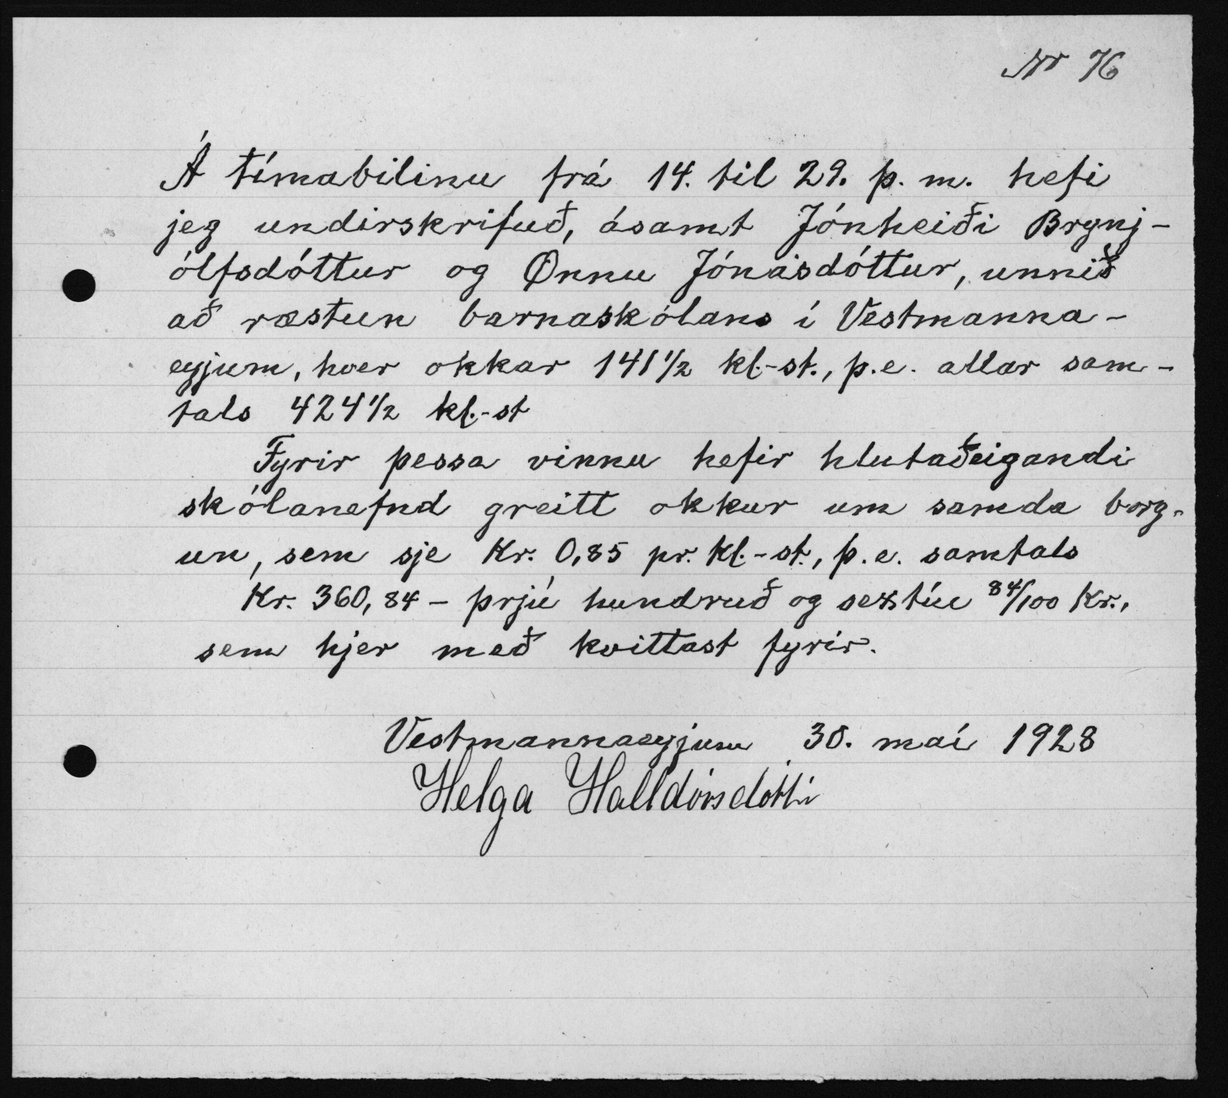 Nr 76
Á tímabilinu frá 14. til 29. þ. m. hefi
jeg undirskrifuð, ásamt Jónheiði Brynj-
ólfsdóttur og Önnu Jónasdóttur, unnið
að ræstun barnaskólans í Vestmanna-
eyjum, hver okkar 141 1/2 kl.-st., þ.e. allar sam-
tals 424 1/2 kl.-st
Fyrir þessa vinnu hefir hlutaðeigandi
skólanefnd greitt okkur um samda borg-
un, sem sje Kr. 0,85 pr. kl.-st., þ.e. samtals
Kr. 360,84 - þrjú hundruð og sextíu 84/100 Kr.,
sem hjer með kvittast fyrir.
Vestmannaeyjum 30. maí 1928
Helga Halldórsdóttir